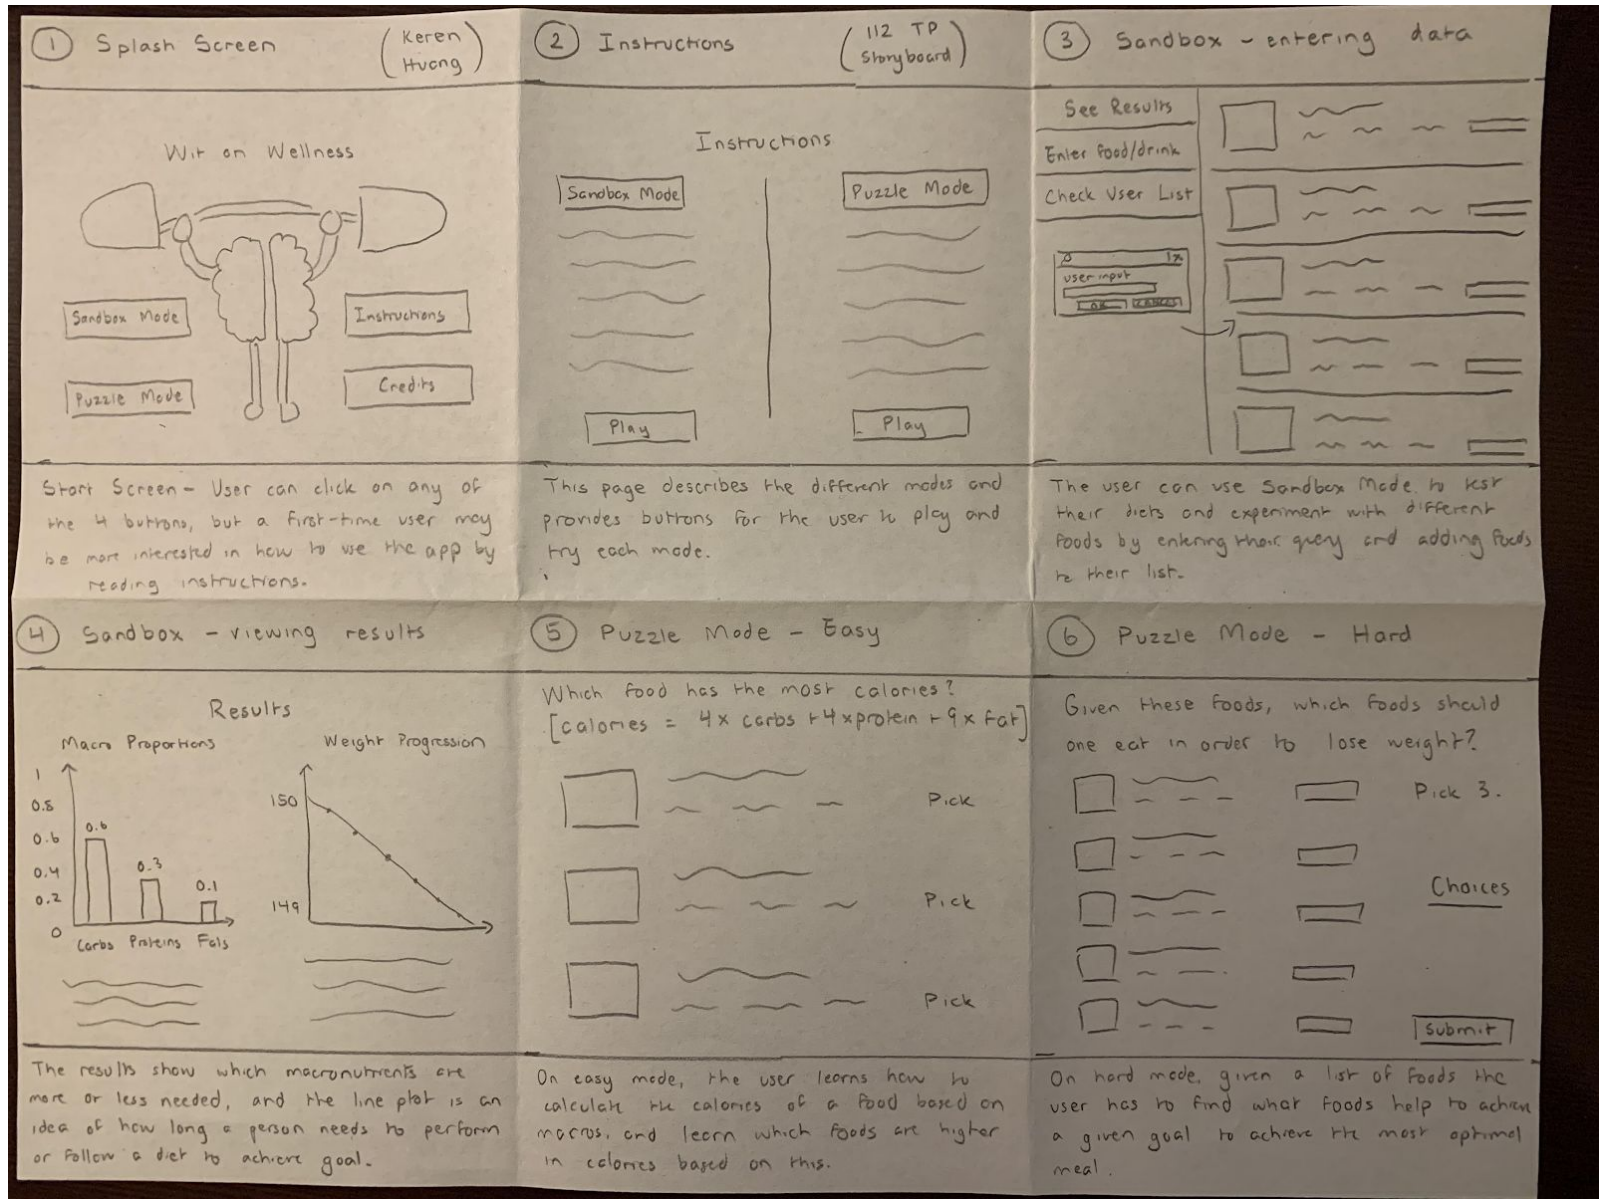 1 Splash Screen (Keren Huang)
Wit on Wellness
Sandbox Mode
Instructions
Puzzle Mode
Credits
Start Screen - User can click on any of
the 4 buttons, but a first-time user may
be more interested in how to use the app by
reading instructions.
2 Instructions (112 TP Storyboard)
Instructions
Sandbox Mode
Puzzle Mode
Play
Play
This page describes the different modes and
provides buttons for the user to play and
try each mode.
3 Sandbox - entering data
See Results
Enter food/drink
Check User List
user input
OK
cancel
The user can use Sandbox Mode to test
their diets and experiment with different
foods by entering their query and adding foods
to their list.
4 Sandbox - viewing results
Results
Macro Proportions
1
0.8
0.6
0.4
0.2
0
0.6
0.3
0.1
Carbs Proteins Fats
Weight Progression
150
149
The results show which macronutrients are
more or less needed, and the line plot is an
idea of how long a person needs to perform
or follow a diet to achieve goal.
5 Puzzle Mode - Easy
Which food has the most calories?
[calories = 4x carbs + 4xprotein + 9x fat]
Pick
Pick
Pick
On easy mode, the user learns how to
calculate the calories of a food based on
macros, and learn which foods are higher
in calories based on this.
6 Puzzle Mode - Hard
Given these foods, which foods should
one eat in order to lose weight?
Pick 3.
Choices
Submit
On hard mode, given a list of foods the
user has to find what foods help to achieve
a given goal to achieve the most optimal
meal.